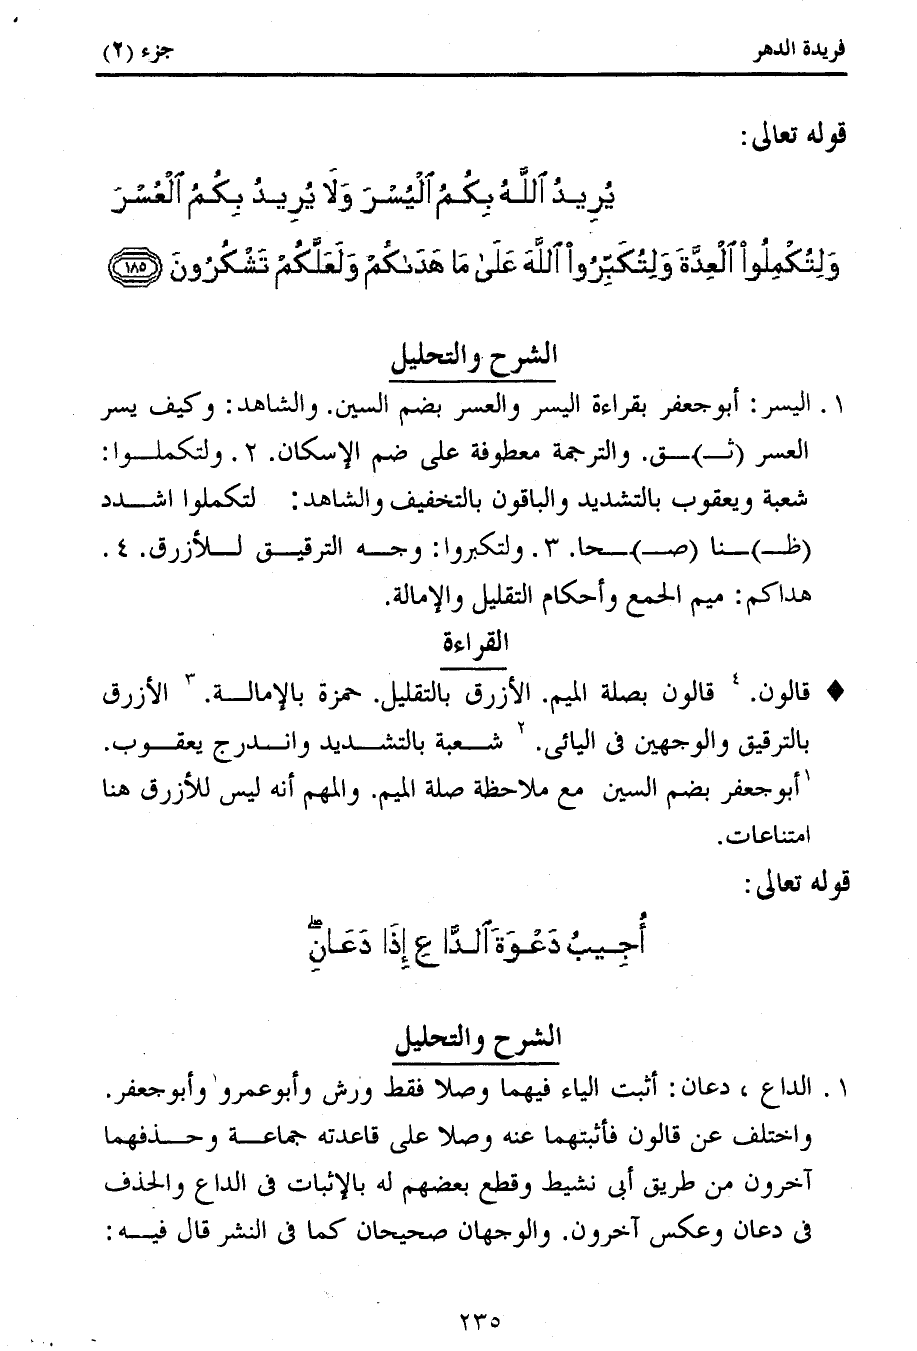 فريدة الدهر
جزء (٢)
قوله تعالى:
يُرِيدُ ٱللَّهُ بِكُمُ ٱلْيُسْرَ وَلَا يُرِيدُ بِكُمُ ٱلْعُسْرَ
وَلِتُكْمِلُوا۟ ٱلْعِدَّةَ وَلِتُكَبِّرُوا۟ ٱللَّهَ عَلَىٰ مَا هَدَىٰكُمْ وَلَعَلَّكُمْ تَشْكُرُونَ ١٨٥
الشرح والتحليل
١. اليسر: أبوجعفر بقراءة اليسر والعسر بضم السين. والشاهد: وكيف يسر
العسر (ثـ)ـق. والترجمة معطوفة على ضم الإسكان. ٢. ولتكملـوا:
شعبة ويعقوب بالتشديد والباقون بالتخفيف والشاهد: لتكملوا اشـدد
(ظـ)ـنا (صـ)ـحا. ٣. ولتكبروا: وجـه الترقيـق لـلأزرق. ٤.
هداكم: ميم الجمع وأحكام التقليل والإمالة.
القراءة
♦ قالون. ٤ قالون بصلة الميم. الأزرق بالتقليل. حمزة بالإمالـة. ٣ الأزرق
بالترقيق والوجهين فى اليائى. ٢ شـعبة بالتشـديد وانـدرج يعقـوب.
١ أبوجعفر بضم السين مع ملاحظة صلة الميم. والمهم أنه ليس للأزرق هنا
امتناعات.
قوله تعالى:
أُجِيبُ دَعْوَةَ ٱلدَّاعِ إِذَا دَعَانِ ۖ
الشرح والتحليل
١. الداع ، دعان: أثبت الياء فيهما وصلا فقط ورش وأبوعمرو وأبوجعفر.
واختلف عن قالون فأثبتهما عنه وصلا على قاعدته جماعـة وحـذفهما
آخرون من طريق أبى نشيط وقطع بعضهم له بالإثبات فى الداع والحذف
فى دعان وعكس آخرون. والوجهان صحيحان كما فى النشر قال فيـه:
٢٣٥